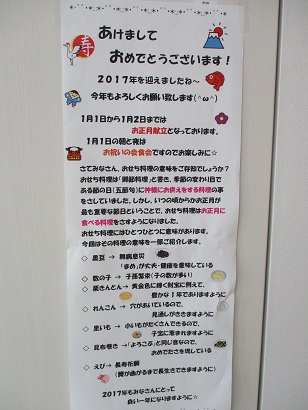 寿
あけまして
おめでとうございます！
2017年を迎えましたね～
今年もよろしくお願い致します(^ω^)
1月1日から1月2日までは
お正月献立となっております。
1月1日の朝と夜は
お祝いの会食会ですのでお楽しみに☆
さてみなさん、おせち料理の意味をご存知でしょうか？
おせち料理は「御節料理」と書き、季節の変わり目で
ある節の日（五節句）に神様にお供えをする料理の事
をさしていました。しかし、いつの頃からかお正月が
最も重要な節日ということで、おせち料理はお正月に
食べる料理をさすようになりました。
おせち料理にはひとつひとつに意味があります。
今回はその料理の意味を一部ご紹介します。
◇ 黒豆 → 無病息災
「まめ」が丈夫・健康を意味している
◇ 数の子 → 子孫繁栄（子の数が多い）
◇ 栗きんとん → 黄金色に輝く財宝に例えて、
豊かな1年でありますように
◇ れんこん → 穴があいているので、
見通しがききますように
◇ 里いも → 小いもがたくさんできるので、
子宝に恵まれますように
◇ 昆布巻き → 「よろこぶ」と同じ音なので、
おめでたさを現している
◇ えび → 長寿祈願
（腰が曲がるまで長生きできますように）
2017年もみなさんにとって
良い一年になりますように☆